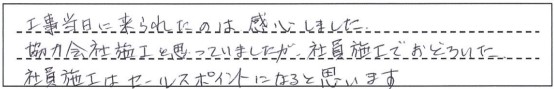 工事当日に来られたのは感心しました。
協力会社施工と思っていましたが、社員施工でおどろいた。
社員施工はセールスポイントになると思います